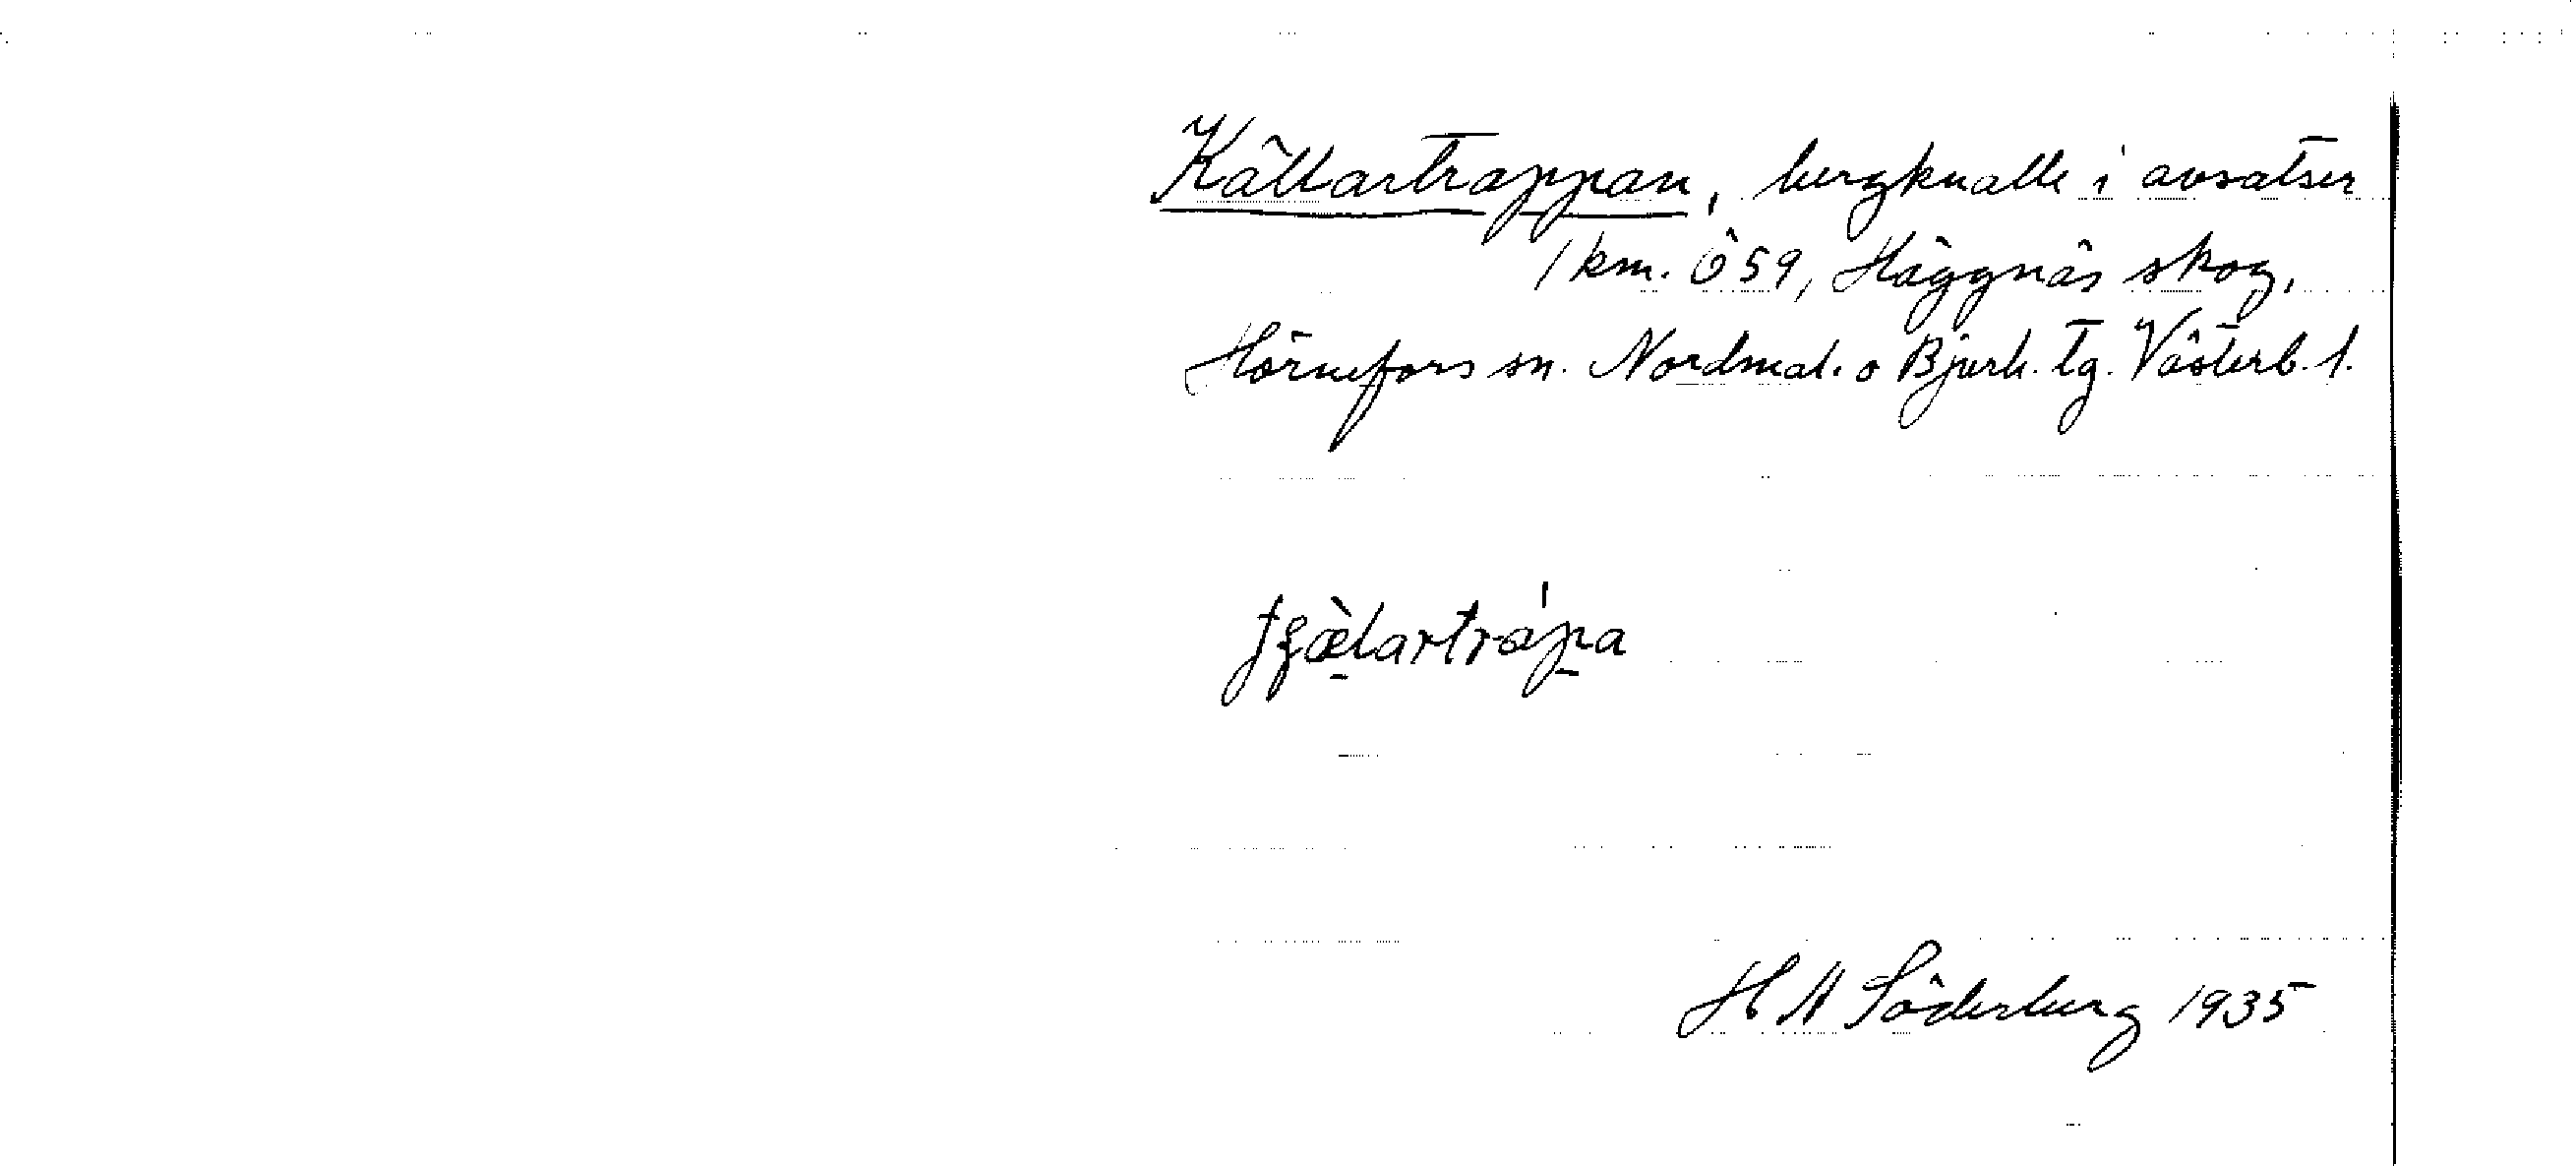 Källartrappan, bergknalle i avsatser
1 km. Ö 59, Häggnäs skog,
Hörnefors sn. Nordmal. o Bjurh. tg. Västerb. l.
H A Söderberg 1935